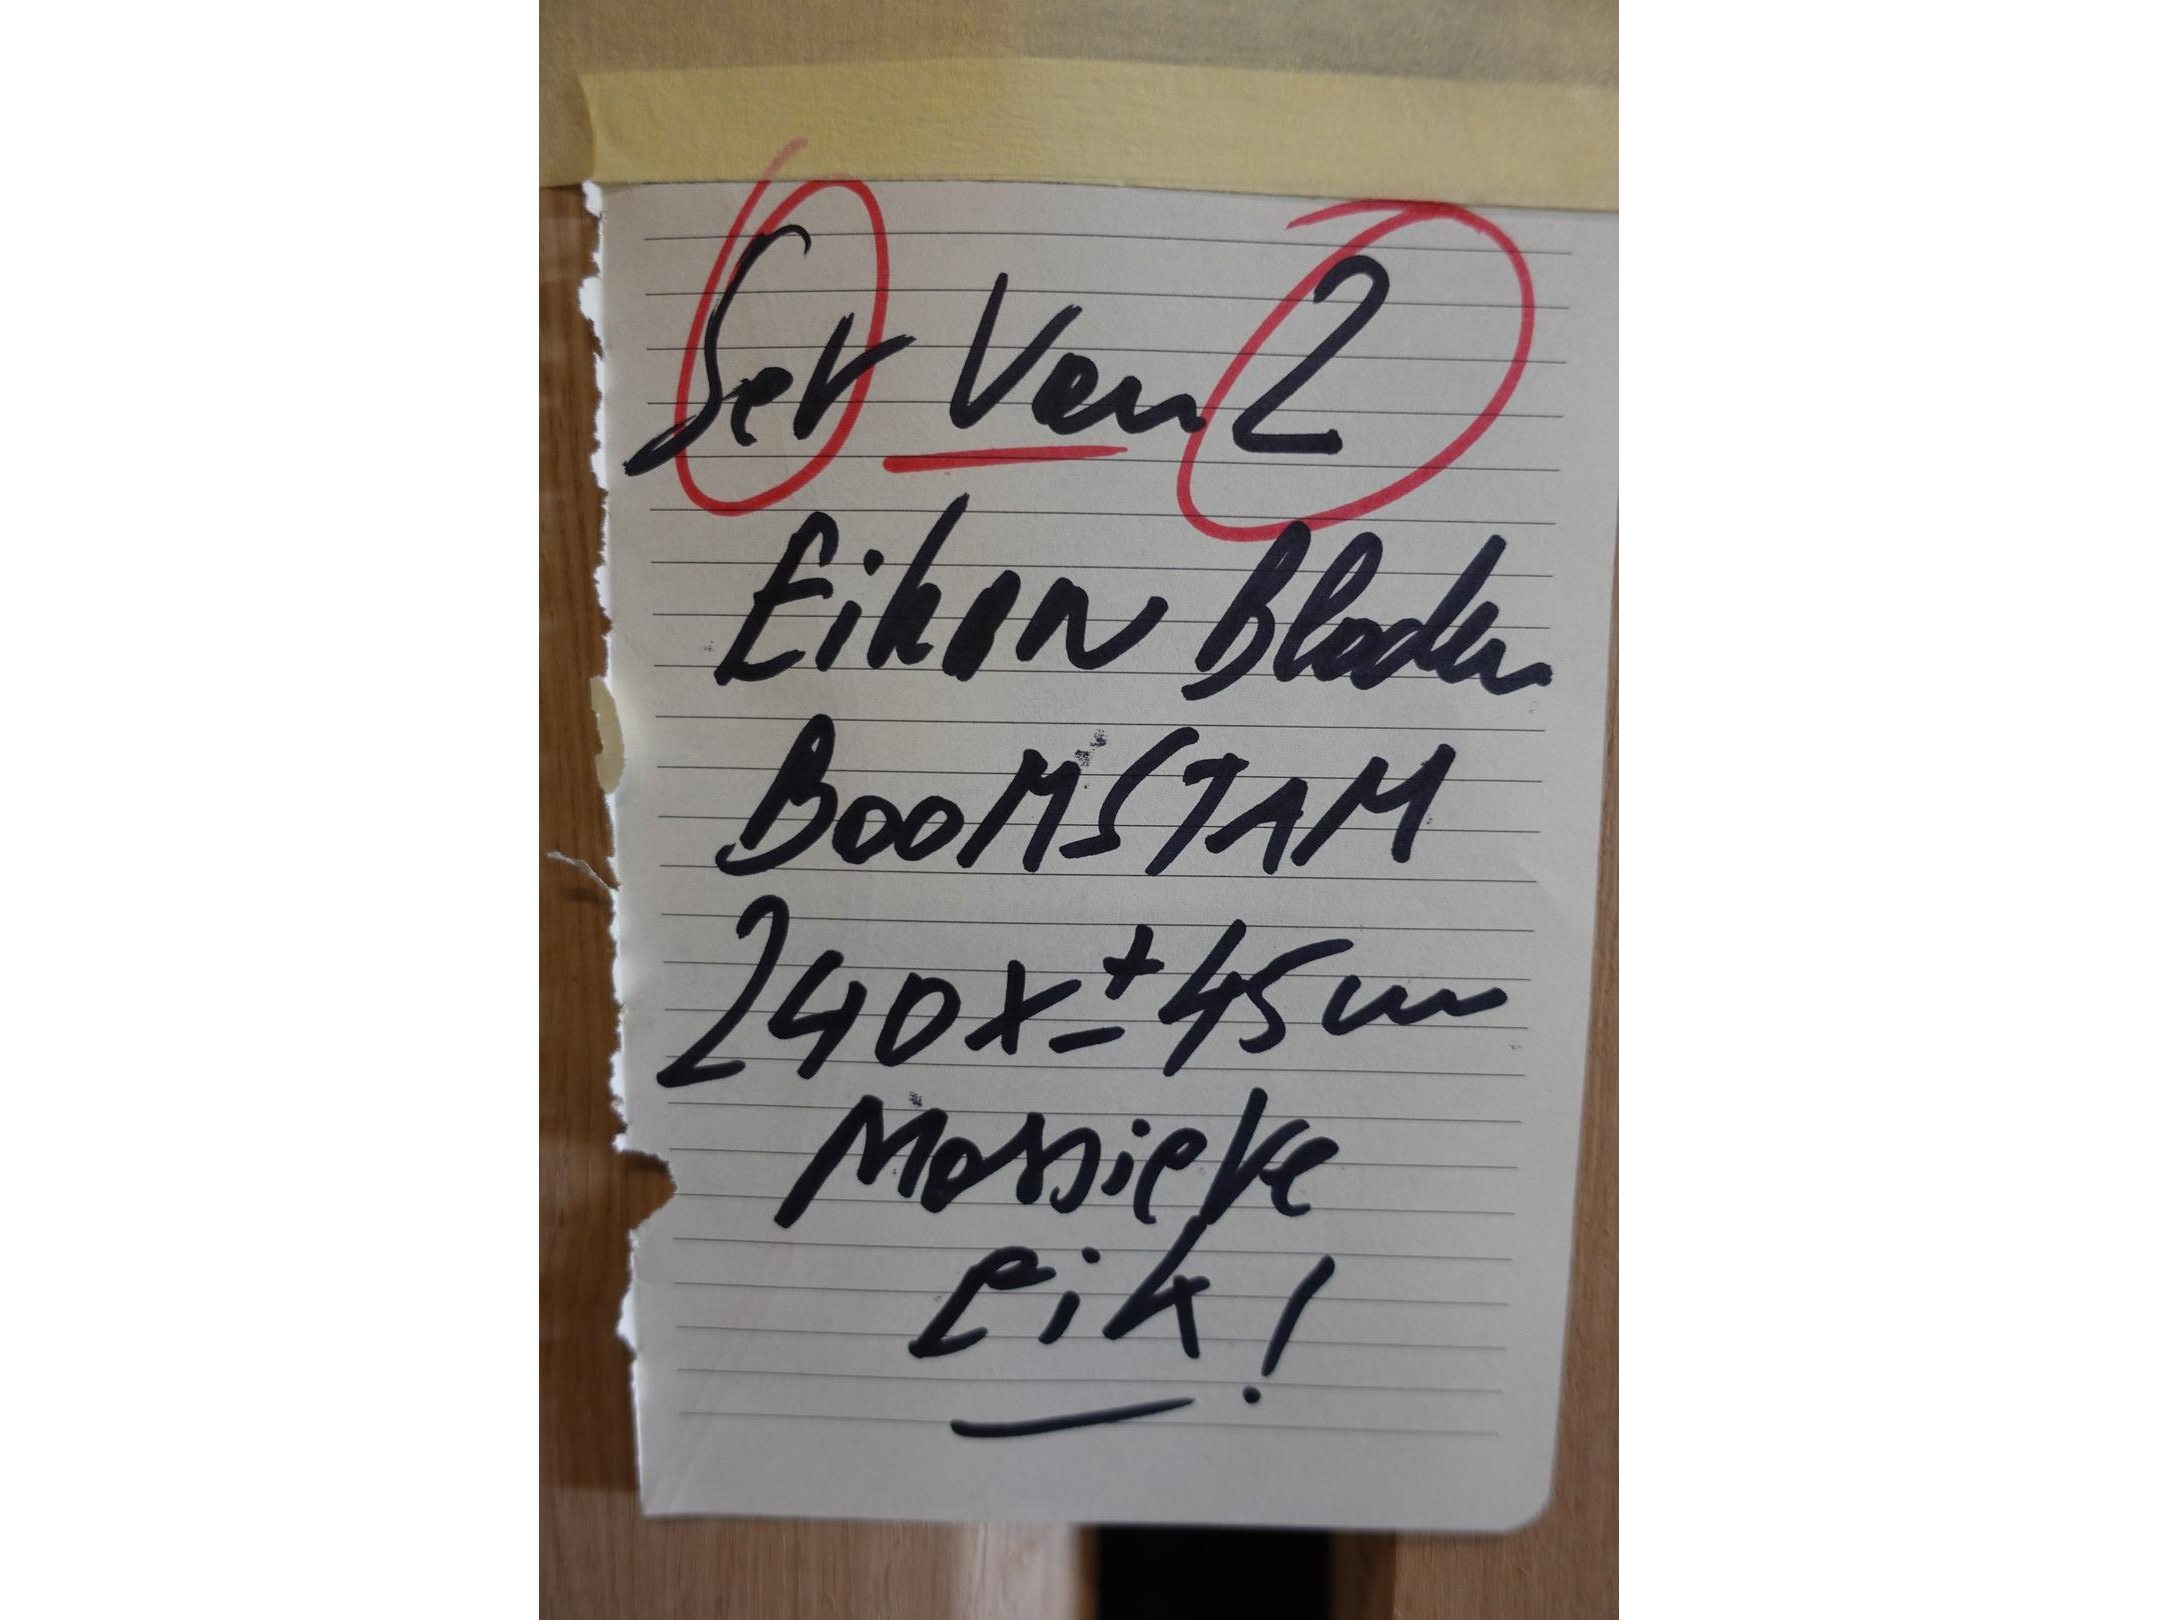 Set van 2
Eiken Bladen
BOOMSTAM
240 x ± 45 cm
Massieve
eik!